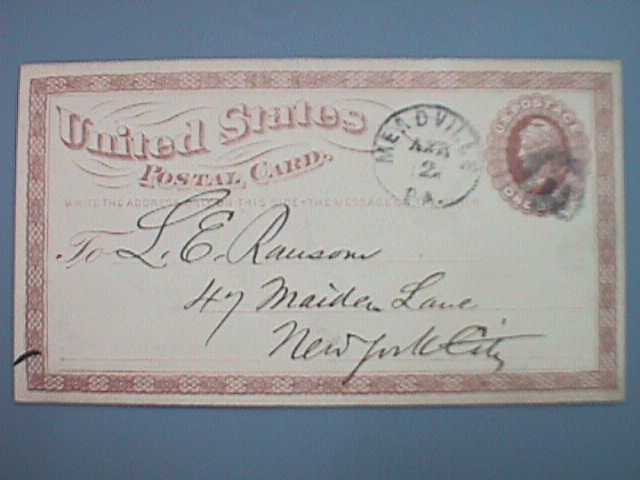 United States
Postal Card.
WRITE THE ADDRESS ONLY ON THIS SIDE - THE MESSAGE ON THE OTHER
To L. E. Ransom
47 Maiden Lane
New York City
MEADVILLE
APR
2
PA.
U.S. POSTAGE
ONE